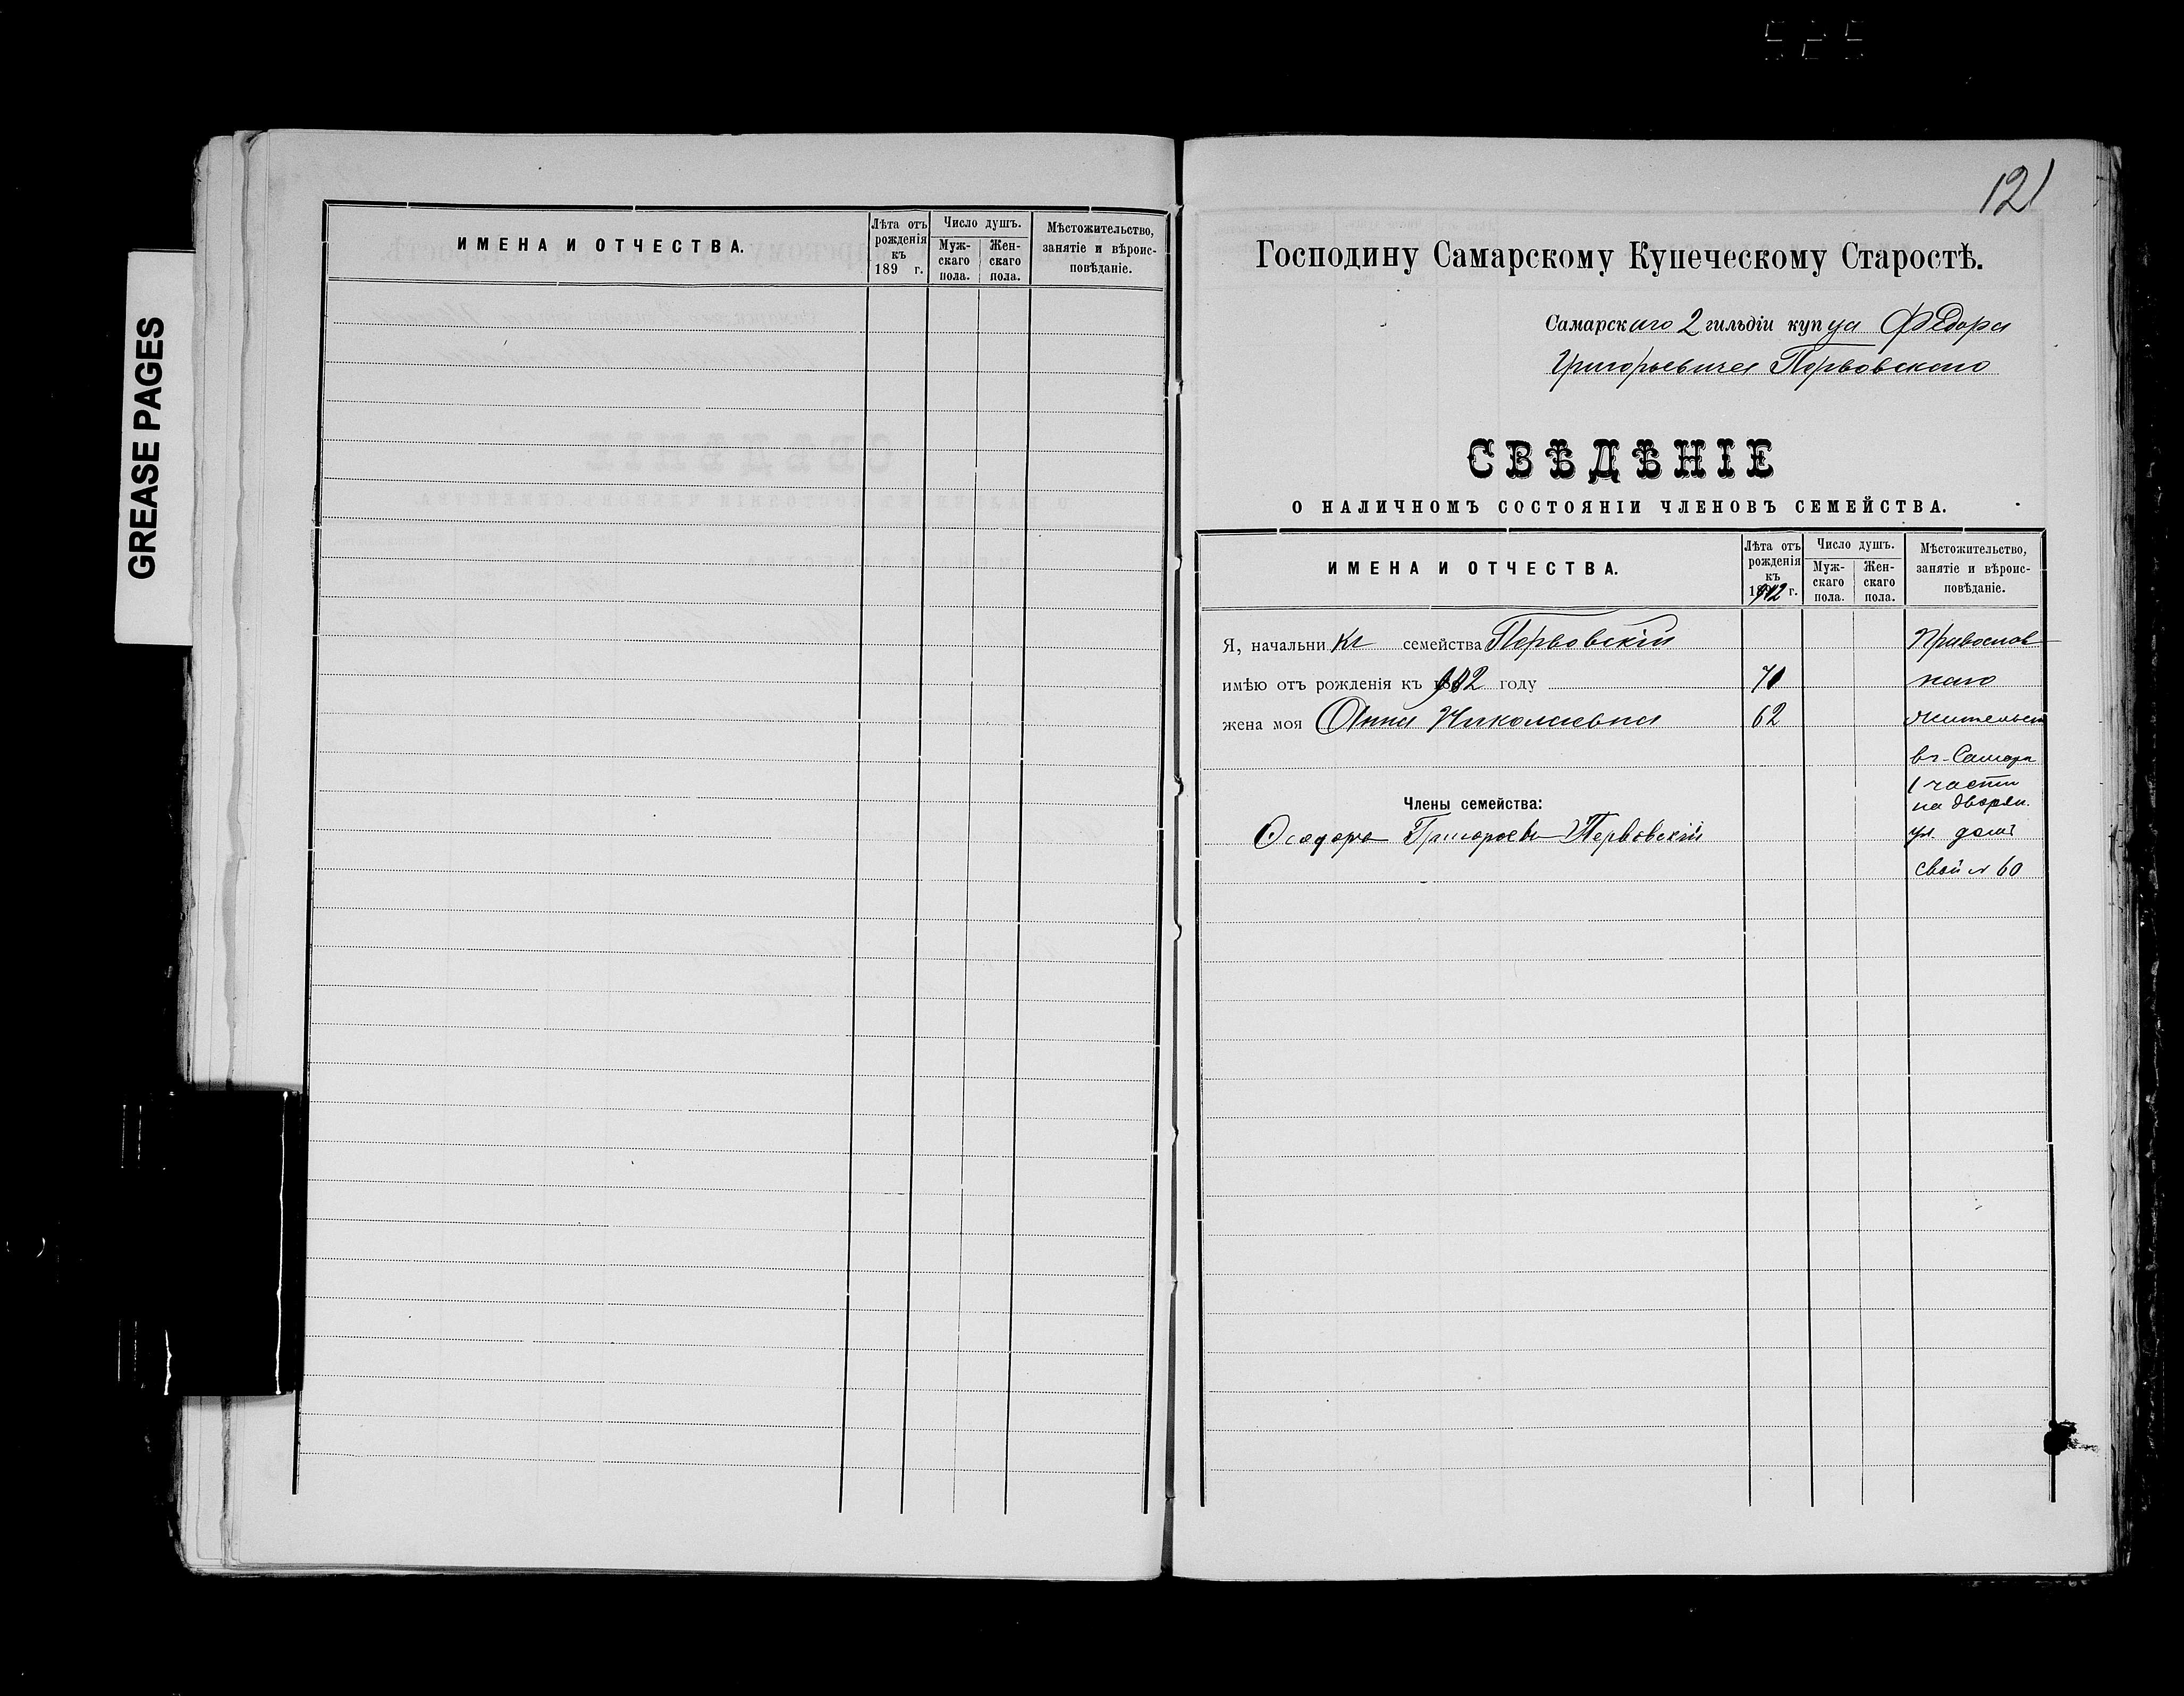 525
GREASE PAGES
ИМЕНА И ОТЧЕСТВА.
Лѣта отъ рожденія къ 189 г.
Число душъ.
Мужскаго пола.
Женскаго пола.
Мѣстожительство, занятіе и вѣроисповѣданіе.
121
Господину Самарскому Купеческому Старостѣ.
Самарскаго 2 гильдіи купца Федора
Григорьевича Первовскаго
СВѢДѢНІЕ
О НАЛИЧНОМЪ СОСТОЯНІИ ЧЛЕНОВЪ СЕМЕЙСТВА.
ИМЕНА И ОТЧЕСТВА.
Лѣта отъ
рожденія
къ
1912 г.
Число душъ.
Муж-
скаго
пола.
Жен-
скаго
пола.
Мѣстожительство,
занятіе и вѣроис-
повѣданіе.
Я, начальникъ семейства Первовскій Православ
имѣю отъ рожденія къ 1912 году 70 наго
жена моя Анна Николаевна 62 жительст
въ Самарѣ
1 части
на дворян.
Члены семейства:
Феодоръ Григорьевъ Первовскій ул. домъ
свой № 60